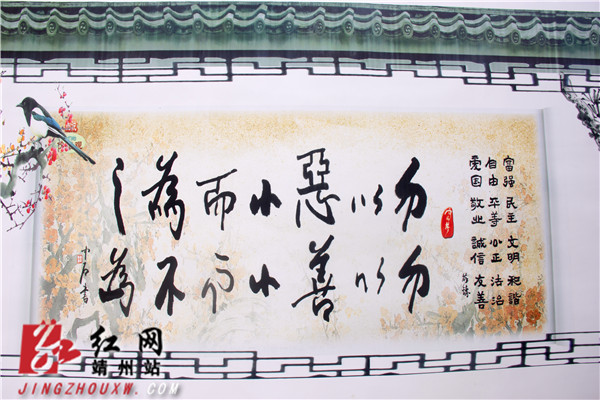 富强 民主 文明 和諧
自由 平等 公正 法治
爱国 敬业 誠信 友善
勿以惡小而為之
勿以善小而不為
红网
靖州站
JINGZHOUXW.COM